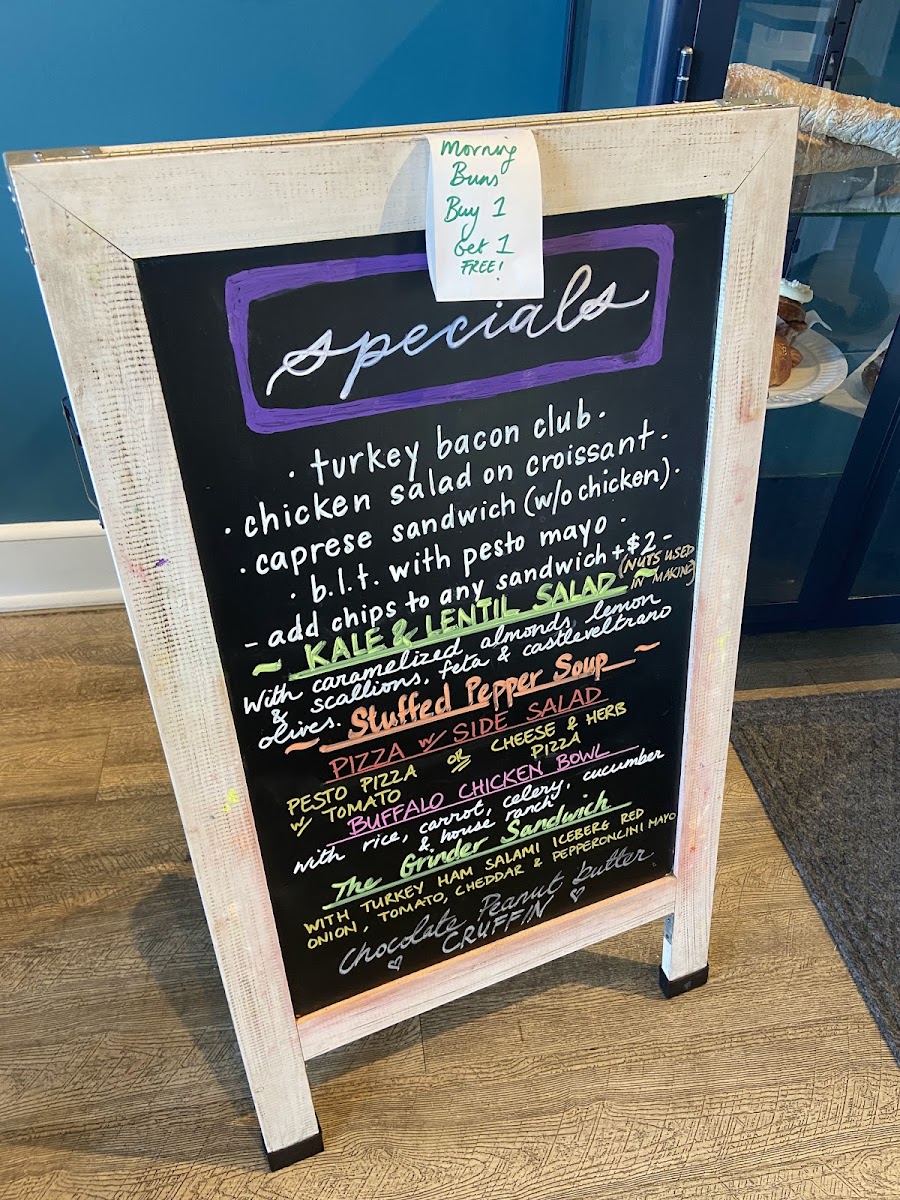 Morning
Buns
Buy 1
Get 1
FREE!
specials
· turkey bacon club ·
· chicken salad on croissant ·
· caprese sandwich (w/o chicken) ·
· b.l.t. with pesto mayo ·
- add chips to any sandwich +$2 -
~ KALE & LENTIL SALAD ~ (NUTS USED
IN MAKING)
With caramelized almonds, lemon
& scallions, feta & castleveltrano
olives.
~ Stuffed Pepper Soup ~
PIZZA w/ SIDE SALAD
PESTO PIZZA OR CHEESE & HERB
w/ TOMATO PIZZA
BUFFALO CHICKEN BOWL
with rice, carrot, celery, cucumber
& house ranch
The Grinder Sandwich
WITH TURKEY HAM SALAMI ICEBERG RED
ONION, TOMATO, CHEDDAR & PEPPERONCINI MAYO
Chocolate Peanut butter
♡ CRUFFIN ♡